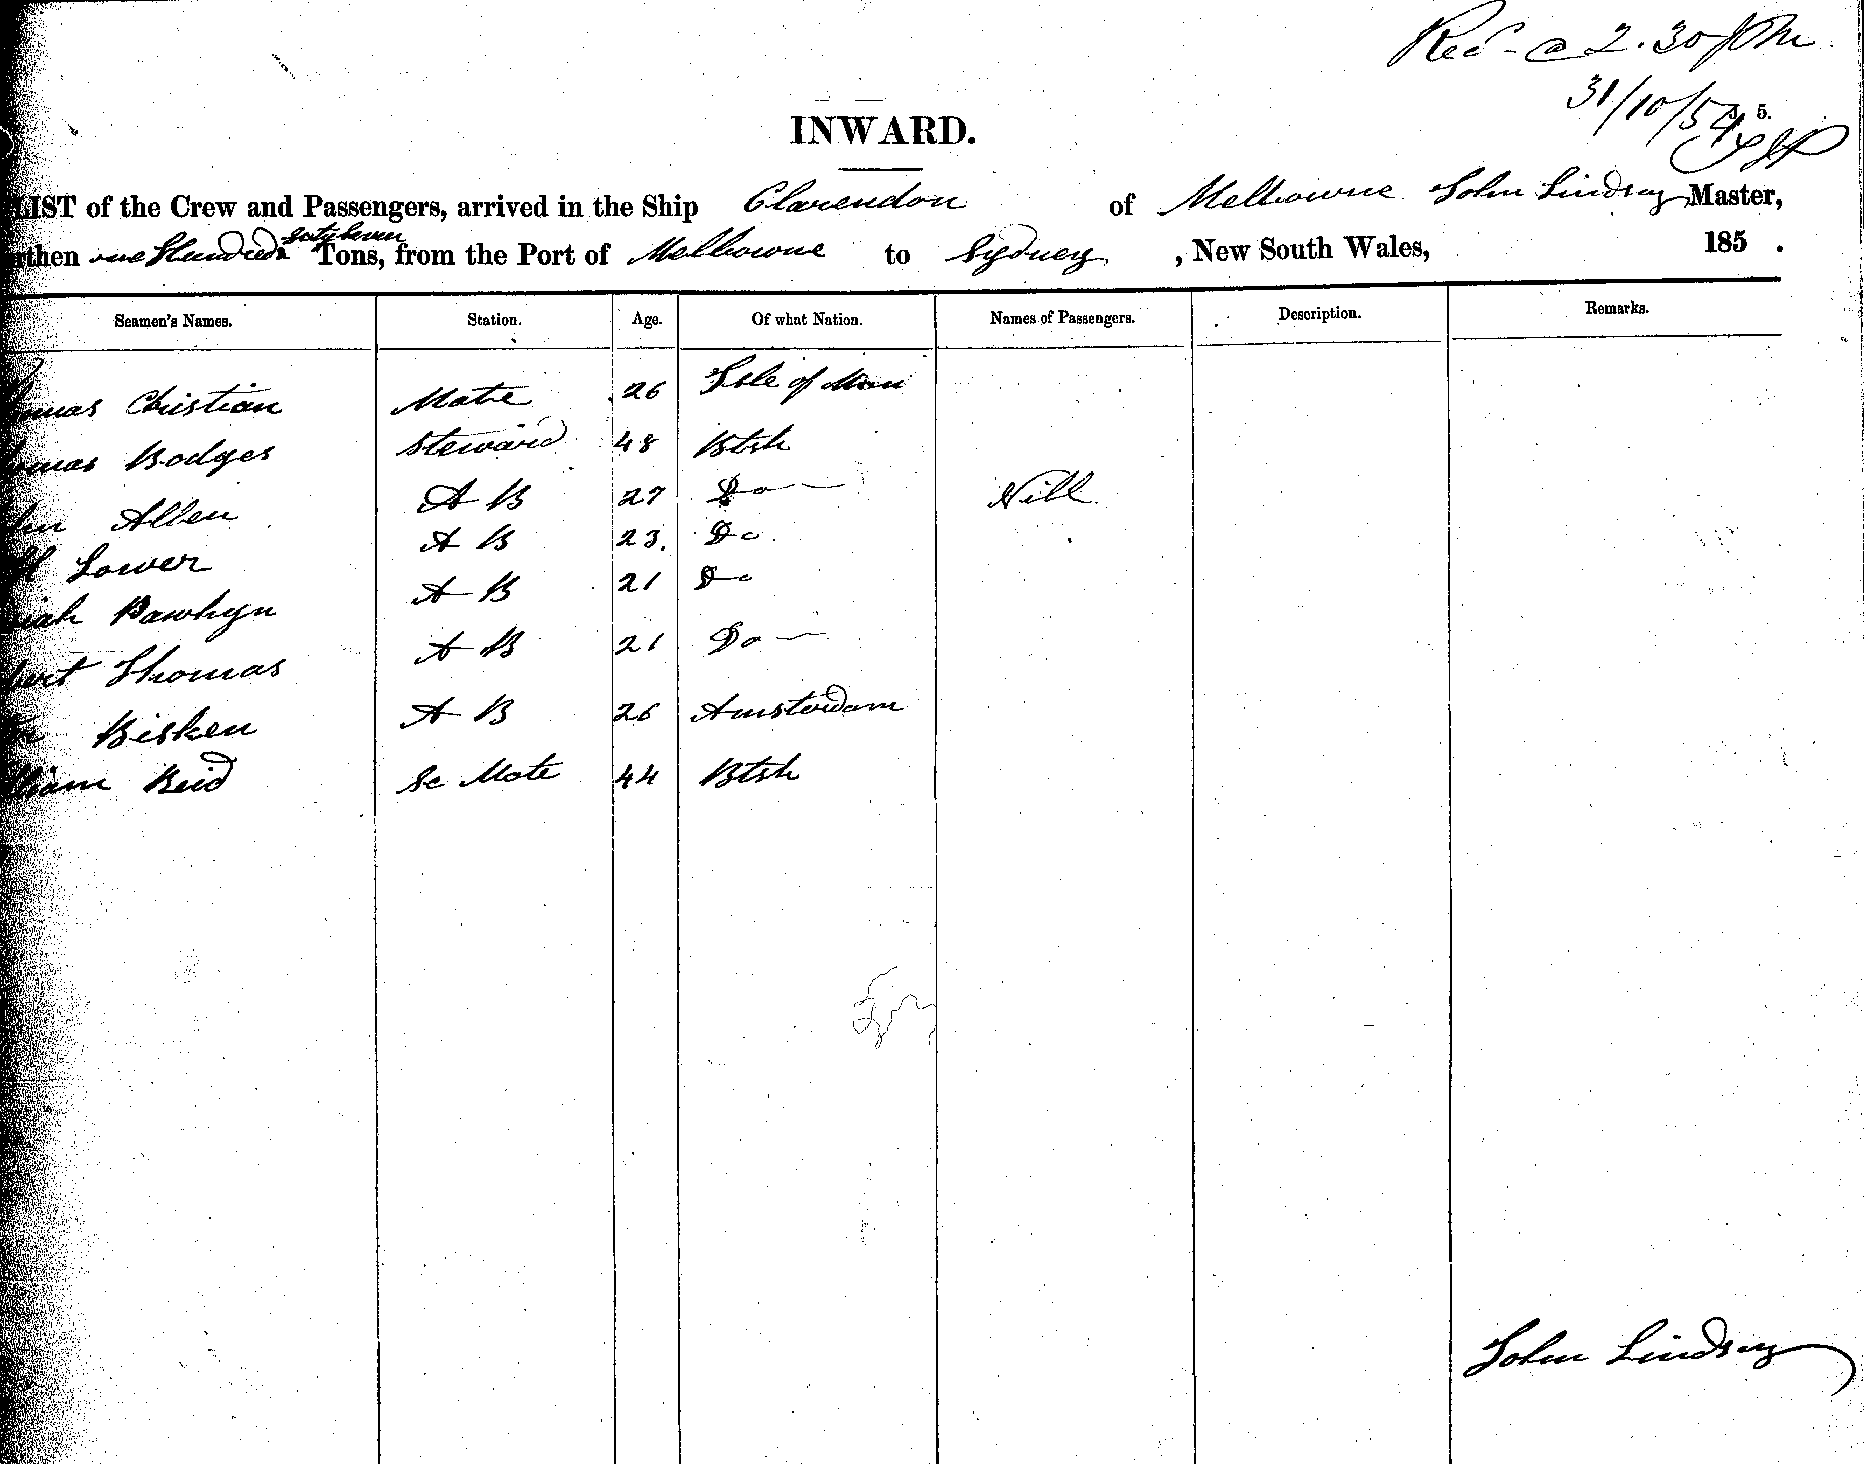 Recd @ 2.30 PM
31/10/54
5.
INWARD.
LIST of the Crew and Passengers, arrived in the Ship Clarendon of Melbourne John Lindsay Master,
rthen one Hundred sixty seven Tons, from the Port of Melbourne to Sydney, New South Wales, 185 .
Seamen's Names. Station. Age. Of what Nation. Names of Passengers. Description. Remarks.
omas Christian Mate 26 Isle of Man
omas Bodges Steward 48 Btsh
Allen A B 27 Do Nill
Lower A B 23. Do
iah Bawhyn A B 21 Do
Thomas A B 21 Do
Bisken A B 26 Amsterdam
liam Reid Sc Mate 44 Btsh
John Lindsay